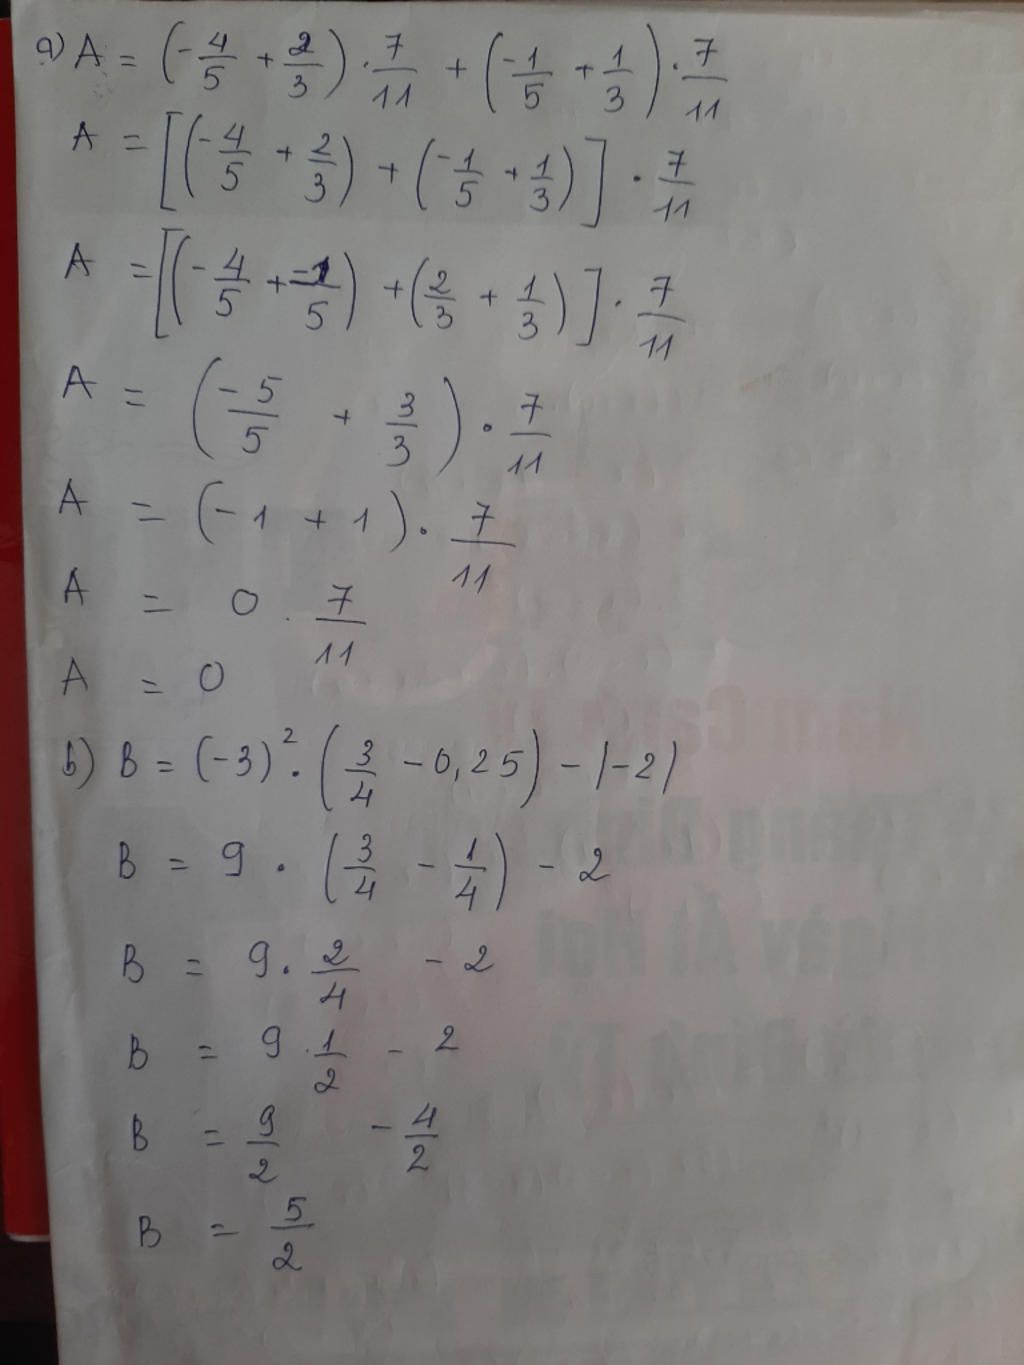 a) A = (-4/5 + 2/3) . 7/11 + (-1/5 + 1/3) . 7/11
A = [(-4/5 + 2/3) + (-1/5 + 1/3)] . 7/11
A = [(-4/5 + -1/5) + (2/3 + 1/3)] . 7/11
A = (-5/5 + 3/3) . 7/11
A = (-1 + 1) . 7/11
A = 0 . 7/11
A = 0
b) B = (-3)² . (3/4 - 0,25) - |-2|
B = 9 . (3/4 - 1/4) - 2
B = 9 . 2/4 - 2
B = 9 . 1/2 - 2
B = 9/2 - 4/2
B = 5/2